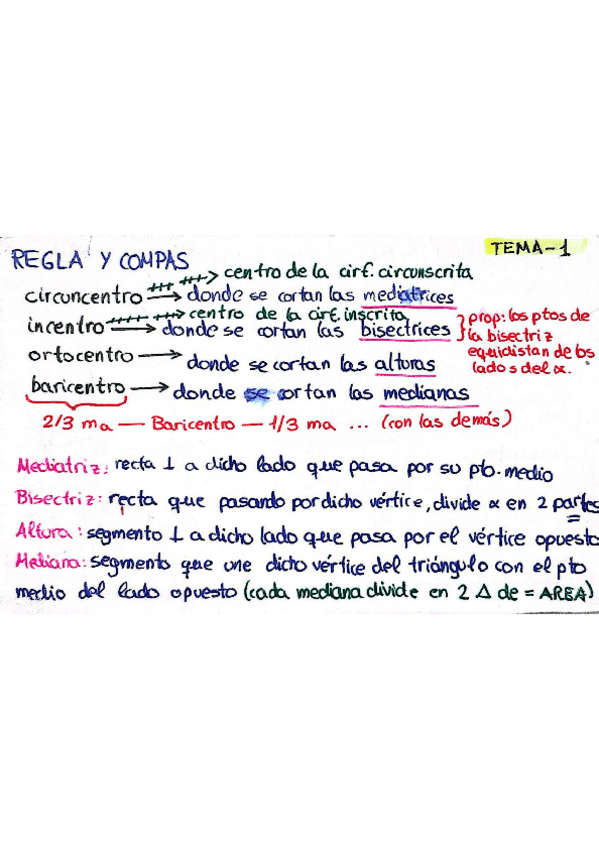 TEMA-1
REGLA Y COMPAS
centro de la cirf. circunscrita
circuncentro → donde se cortan las mediatrices
centro de la circ. inscrita
incentro → donde se cortan las bisectrices } prop: los ptos de
la bisectriz
equidistan de los
lados del α.
ortocentro → donde se cortan las alturas
baricentro → donde se cortan las medianas
2/3 ma — Baricentro — 1/3 ma ... (con las demás)
Mediatriz: recta ⊥ a dicho lado que pasa por su pto. medio
Bisectriz: recta que pasando por dicho vértice, divide α en 2 partes
=
Altura: segmento ⊥ a dicho lado que pasa por el vértice opuesto
Mediana: segmento que une dicho vértice del triángulo con el pto
medio del lado opuesto (cada mediana divide en 2 Δ de = AREA)